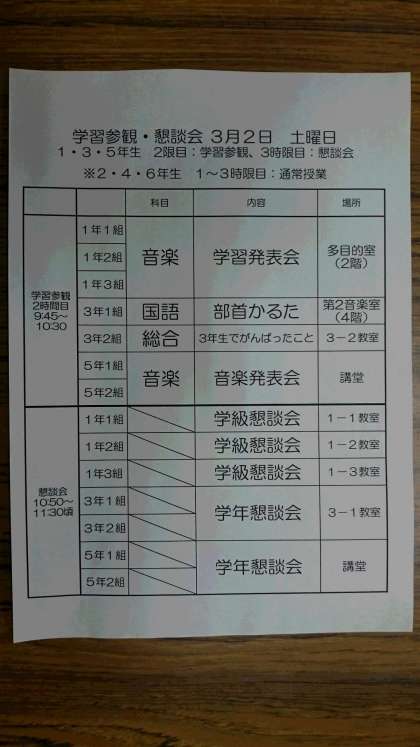 学習参観・懇談会 3月2日 土曜日
1・3・5年生 2限目：学習参観、3時限目：懇談会
※2・4・6年生 1～3時限目：通常授業
科目 内容 場所
学習参観
2時間目
9:45～
10:30
1年1組
1年2組
1年3組
音楽 学習発表会 多目的室
（2階）
3年1組 国語 部首かるた 第2音楽室
（4階）
3年2組 総合 3年生でがんばったこと 3－2教室
5年1組
5年2組
音楽 音楽発表会 講堂
懇談会
10:50～
11:30頃
1年1組 学級懇談会 1－1教室
1年2組 学級懇談会 1－2教室
1年3組 学級懇談会 1－3教室
3年1組
3年2組
学年懇談会 3－1教室
5年1組
5年2組
学年懇談会 講堂